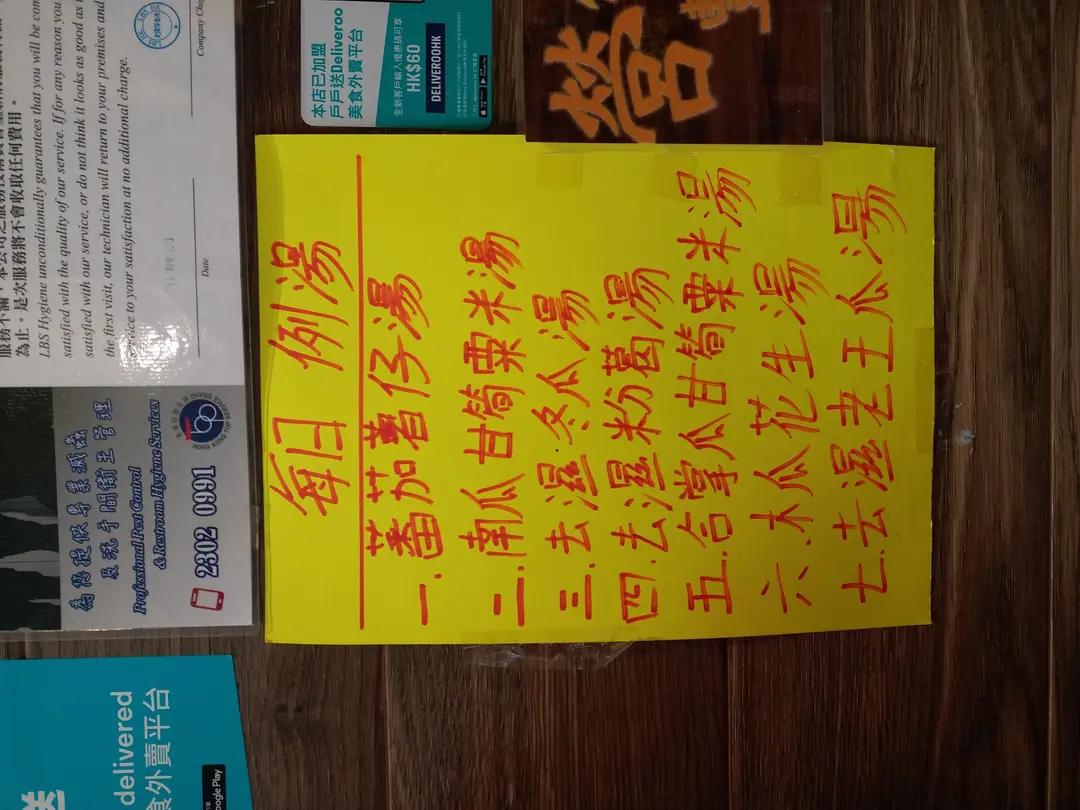 服務不滿，本公司之服務技術員會重新到服務
為止。是次服務將不會收取任何費用。
LBS Hygiene unconditionally guarantees that you will be com
satisfied with the quality of our service. If for any reason you
satisfied with our service, or do not think it looks as good as
the first visit, our technician will return to your premises and
service to your satisfaction at no additional charge.
Date
Company Cho
為您提供專業滅蟲
及洗手間衛生管理
Professional Pest Control
& Restroom Hygiene Services
2302 0991
delivered
食外賣平台
Google Play
本店已加盟
戶戶送Deliveroo
美食外賣平台
全新客戶輸入優惠碼可享
HK$60
DELIVEROOHK
營
每日 例湯
一.蕃茄薯仔湯
二.南瓜甘筍粟米湯
三.去濕冬瓜湯
四.去濕粉葛湯
五.合掌瓜甘筍粟米湯
六.木瓜花生湯
七.去濕老王瓜湯